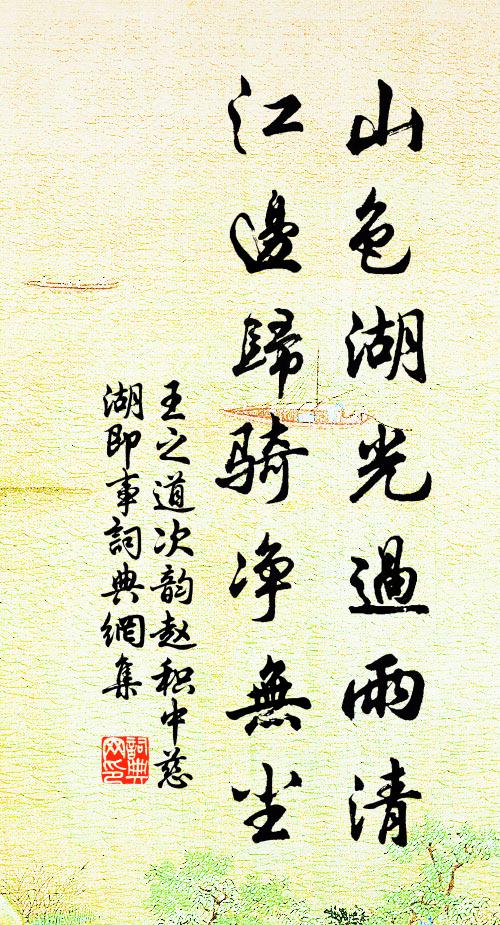 山色湖光過雨清
江邊歸骑净無尘
王之道次韵赵积中慈
湖即事詞典網集
詞典
网印